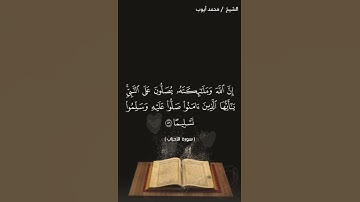 الشيخ / محمد أيوب
إِنَّ ٱللَّهَ وَمَلَٰٓئِكَتَهُۥ يُصَلُّونَ عَلَى ٱلنَّبِيِّۚ
يَٰٓأَيُّهَا ٱلَّذِينَ ءَامَنُواْ صَلُّواْ عَلَيْهِ وَسَلِّمُواْ
تَسْلِيمًا ۝٥٦
(سورة الأحزاب)